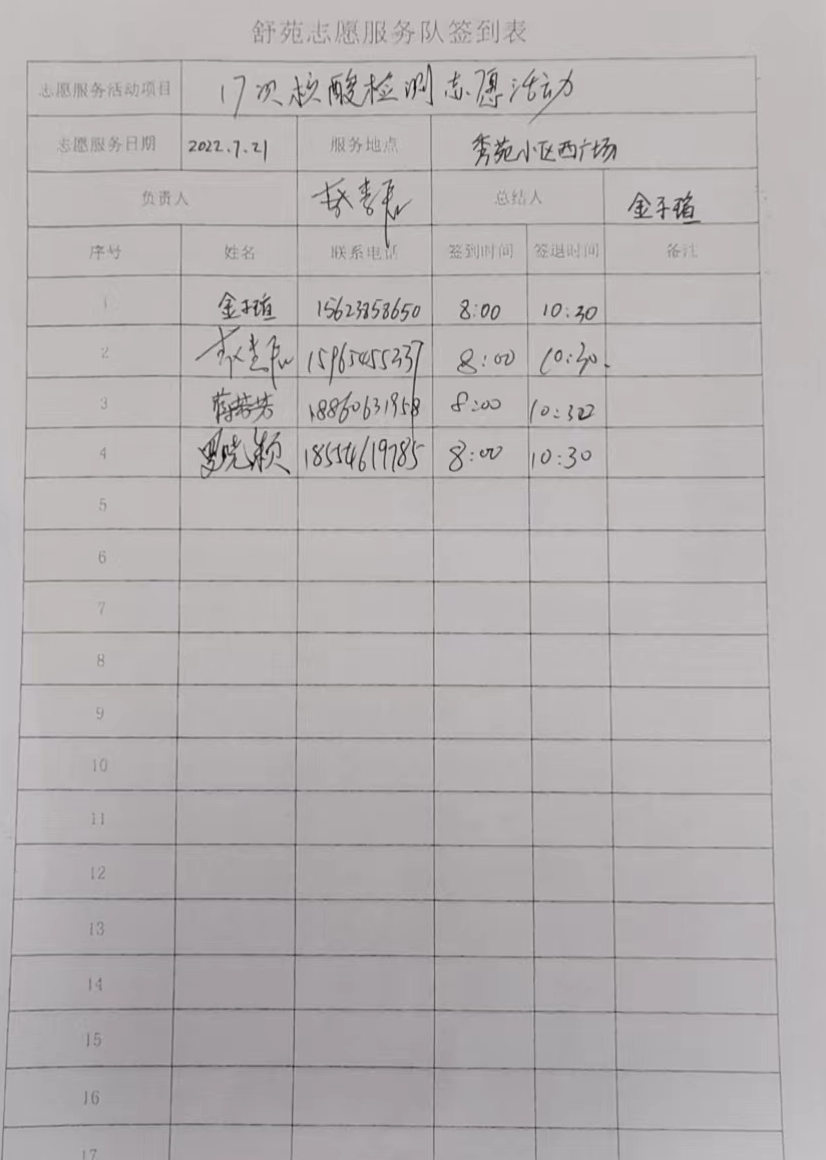 舒苑志愿服务队签到表
志愿服务活动项目 17次核酸检测志愿活动
志愿服务日期 2022.7.21 服务地点 秀苑小区西广场
负责人 总结人 金子瑄
序号 姓名 联系电话 签到时间 签退时间 备注
1 金子瑄 15623858650 8:00 10:30
2 15965455337 8:00 10:30.
3 18860631958 8:00 10:30
4 罗晓颖 18554619785 8:00 10:30
5
6
7
8
9
10
11
12
13
14
15
16
17